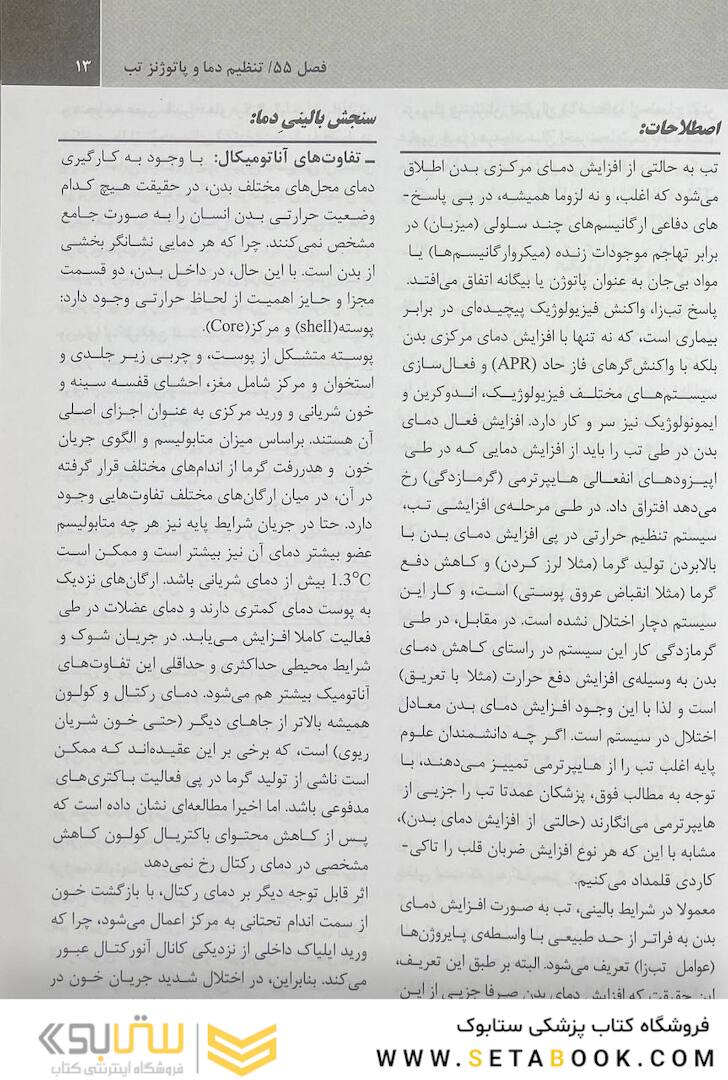 فصل ۵۵/ تنظیم دما و پاتوژنز تب
۱۳
اصطلاحات:
تب به حالتی از افزایش دمای مرکزی بدن اطلاق
می‌شود که اغلب، و نه لزوما همیشه، در پی پاسخ-
های دفاعی ارگانیسم‌های چند سلولی (میزبان) در
برابر تهاجم موجودات زنده (میکروارگانیسم‌ها) یا
مواد بی‌جان به عنوان پاتوژن یا بیگانه اتفاق می‌افتد.
پاسخ تب‌زا، واکنش فیزیولوژیک پیچیده‌ای در برابر
بیماری است، که نه تنها با افزایش دمای مرکزی بدن
بلکه با واکنش‌گرهای فاز حاد (APR) و فعال‌سازی
سیستم‌های مختلف فیزیولوژیک، اندوکرین و
ایمونولوژیک نیز سر و کار دارد. افزایش فعال دمای
بدن در طی تب را باید از افزایش دمایی که در طی
اپیزودهای انفعالی هایپرترمی (گرمازدگی) رخ
می‌دهد افتراق داد. در طی مرحله‌ی افزایشی تب،
سیستم تنظیم حرارتی در پی افزایش دمای بدن با
بالابردن تولید گرما (مثلا لرز کردن) و کاهش دفع
گرما (مثلا انقباض عروق پوستی) است، و کار این
سیستم دچار اختلال نشده است. در مقابل، در طی
گرمازدگی کار این سیستم در راستای کاهش دمای
بدن به وسیله‌ی افزایش دفع حرارت (مثلا با تعریق)
است و لذا با این وجود افزایش دمای بدن معادل
اختلال در سیستم است. اگر چه دانشمندان علوم
پایه اغلب تب را از هایپرترمی تمییز می‌دهند، با
توجه به مطالب فوق، پزشکان عمدتا تب را جزیی از
هایپرترمی می‌انگارند (حالتی از افزایش دمای بدن)،
مشابه با این که هر نوع افزایش ضربان قلب را تاکی-
کاردی قلمداد می‌کنیم.
معمولا در شرایط بالینی، تب به صورت افزایش دمای
بدن به فراتر از حد طبیعی با واسطه‌ی پایروژن‌ها
(عوامل تب‌زا) تعریف می‌شود. البته بر طبق این تعریف،
این حقیقت که افزایش دمای بدن صرفا جزیی از این
سنجش بالینیِ دما:
ــ تفاوت‌های آناتومیکال: با وجود به کارگیری
دمای محل‌های مختلف بدن، در حقیقت هیچ کدام
وضعیت حرارتی بدن انسان را به صورت جامع
مشخص نمی‌کنند. چرا که هر دمایی نشانگر بخشی
از بدن است. با این حال، در داخل بدن، دو قسمت
مجزا و حایز اهمیت از لحاظ حرارتی وجود دارد:
پوسته(shell) و مرکز(Core).
پوسته متشکل از پوست، و چربی زیر جلدی و
استخوان و مرکز شامل مغز، احشای قفسه سینه و
خون شریانی و ورید مرکزی به عنوان اجزای اصلی
آن هستند. براساس میزان متابولیسم و الگوی جریان
خون و هدررفت گرما از اندام‌های مختلف قرار گرفته
در آن، در میان ارگان‌های مختلف تفاوت‌هایی وجود
دارد. حتا در جریان شرایط پایه نیز هر چه متابولیسم
عضو بیشتر دمای آن نیز بیشتر است و ممکن است
1.3°C بیش از دمای شریانی باشد. ارگان‌های نزدیک
به پوست دمای کمتری دارند و دمای عضلات در طی
فعالیت کاملا افزایش می‌یابد. در جریان شوک و
شرایط محیطی حداکثری و حداقلی این تفاوت‌های
آناتومیک بیشتر هم می‌شود. دمای رکتال و کولون
همیشه بالاتر از جاهای دیگر (حتی خون شریان
ریوی) است، که برخی بر این عقیده‌اند که ممکن
است ناشی از تولید گرما در پی فعالیت باکتری‌های
مدفوعی باشد. اما اخیرا مطالعه‌ای نشان داده است که
پس از کاهش محتوای باکتریال کولون کاهش
مشخصی در دمای رکتال رخ نمی‌دهد
اثر قابل توجه دیگر بر دمای رکتال، با بازگشت خون
از سمت اندام تحتانی به مرکز اعمال می‌شود، چرا که
ورید ایلیاک داخلی از نزدیکی کانال آنورکتال عبور
می‌کند. بنابراین، در اختلال شدید جریان خون در
فروشگاه کتاب پزشکی ستابوک
WWW.SETABOOK.COM
ستابوک
فروشگاه اینترنتی کتاب